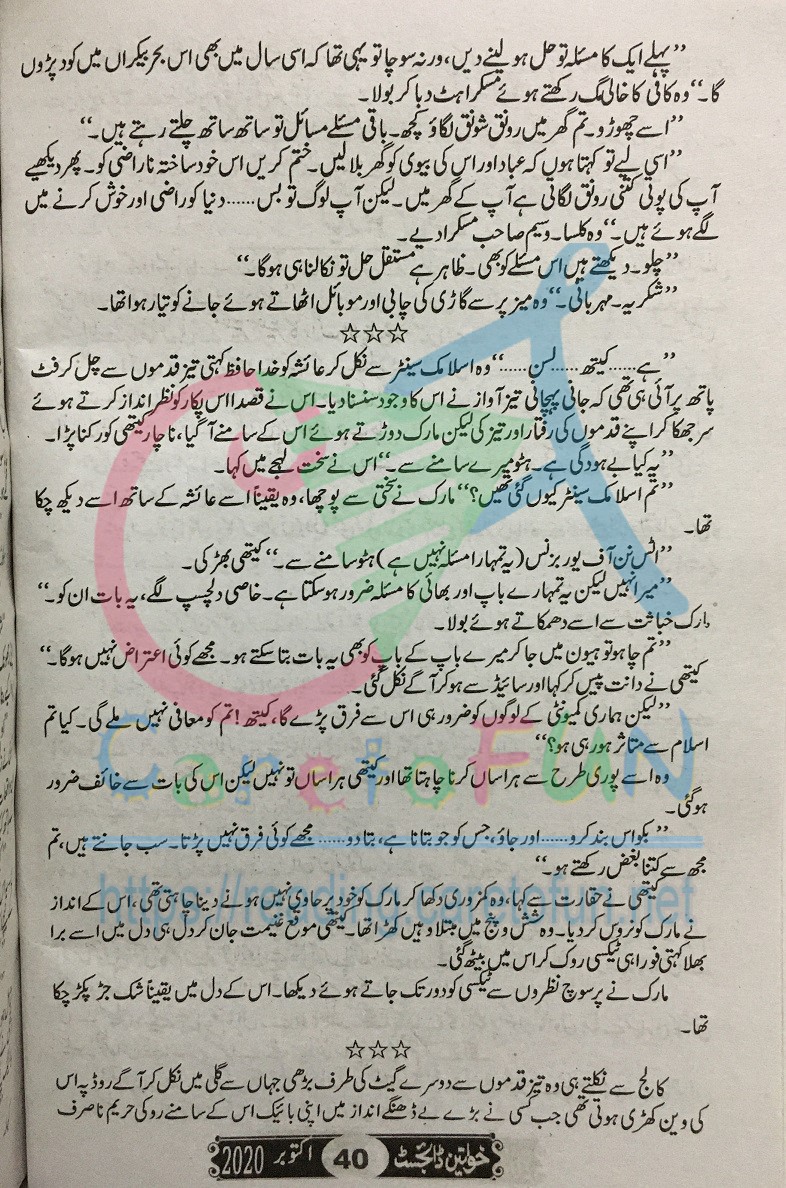 ”پہلے ایک کا مسئلہ تو حل ہو لینے دیں، ورنہ سوچا تو یہی تھا کہ اسی سال میں بھی اس بحر بیکراں میں کود پڑوں
گا۔“ وہ کافی کا خالی مگ رکھتے ہوئے مسکراہٹ دبا کر بولا۔
”اسے چھوڑو۔ تم گھر میں رونق شونق لگاؤ کچھ۔ باقی مسئلے مسائل تو ساتھ ساتھ چلتے رہتے ہیں۔“
”اسی لیے تو کہتا ہوں کہ عباد اور اس کی بیوی کو گھر بلا لیں۔ ختم کریں اس خود ساختہ ناراضی کو۔ پھر دیکھیے
آپ کی پوتی کتنی رونق لگاتی ہے آپ کے گھر میں۔ لیکن آپ لوگ تو بس...... دنیا کو راضی اور خوش کرنے میں
لگے ہوئے ہیں۔“ وہ کلسا۔ وسیم صاحب مسکرا دیے۔
”چلو۔ دیکھتے ہیں اس مسئلے کو بھی۔ ظاہر ہے مستقل حل تو نکالنا ہی ہوگا۔“
”شکریہ۔ مہربانی۔“ وہ میز پر سے گاڑی کی چابی اور موبائل اٹھاتے ہوئے جانے کو تیار ہوا تھا۔
☆☆☆
”ہے...... کیتھ...... لسن......“ وہ اسلامک سینٹر سے نکل کر عائشہ کو خدا حافظ کہتی تیز قدموں سے چل کر فٹ
پاتھ پر آئی ہی تھی کہ جانی پہچانی تیز آواز نے اس کا وجود سنسنا دیا۔ اس نے قصداً اس پکار کو نظر انداز کرتے ہوئے
سر جھکا کر اپنے قدموں کی رفتار اور تیز کی لیکن مارک دوڑتے ہوئے اس کے سامنے آ گیا، ناچار کیتھی کو رکنا پڑا۔
”یہ کیا بے ہودگی ہے۔ ہٹو میرے سامنے سے۔“ اس نے سخت لہجے میں کہا۔
”تم اسلامک سینٹر کیوں گئی تھیں؟“ مارک نے سختی سے پوچھا، وہ یقیناً اسے عائشہ کے ساتھ اسے دیکھ چکا
تھا۔
”اٹس نن آف یور بزنس (یہ تمہارا مسئلہ نہیں ہے) ہٹو سامنے سے۔“ کیتھی بھڑکی۔
”میرا نہیں لیکن یہ تمہارے باپ اور بھائی کا مسئلہ ضرور ہو سکتا ہے۔ خاصی دلچسپ لگے، یہ بات ان کو۔“
مارک خباثت سے اسے دھمکاتے ہوئے بولا۔
”تم چاہو تو ہیون میں جا کر میرے باپ کے باپ کو بھی یہ بات بتا سکتے ہو۔ مجھے کوئی اعتراض نہیں ہوگا۔“
کیتھی نے دانت پیس کر کہا اور سائیڈ سے ہو کر آگے نکل گئی۔
”لیکن ہماری کمیونٹی کے لوگوں کو ضرور ہی اس سے فرق پڑے گا، کیتھ! تم کو معافی نہیں ملے گی۔ کیا تم
اسلام سے متاثر ہو رہی ہو؟“
وہ اسے پوری طرح سے ہراساں کرنا چاہتا تھا اور کیتھی ہراساں تو نہیں لیکن اس کی بات سے خائف ضرور
ہو گئی۔
”بکواس بند کرو...... اور جاؤ، جس کو جو بتانا ہے، بتا دو...... مجھے کوئی فرق نہیں پڑتا۔ سب جانتے ہیں، تم
مجھ سے کتنا بغض رکھتے ہو۔“
کیتھی نے حقارت سے کہا، وہ کمزوری دکھا کر مارک کو خود پر حاوی نہیں ہونے دینا چاہتی تھی، اس کے انداز
نے مارک کو نروس کر دیا۔ وہ شش و پنج میں مبتلا وہیں کھڑا تھا۔ کیتھی موقع غنیمت جان کر دل ہی دل میں اسے برا
بھلا کہتی فوراً ہی ٹیکسی روک کر اس میں بیٹھ گئی۔
مارک نے پرسوچ نظروں سے ٹیکسی کو دور تک جاتے ہوئے دیکھا۔ اس کے دل میں یقیناً شک جڑ پکڑ چکا
تھا۔
☆☆☆
کالج سے نکلتے ہی وہ تیز قدموں سے دوسرے گیٹ کی طرف بڑھی جہاں سے گلی میں نکل کر آگے روڈ پہ اس
کی وین کھڑی ہوتی تھی جب کسی نے بڑے بے ڈھنگے انداز میں اپنی بائیک اس کے سامنے روکی حریم نا صرف
خواتین ڈائجسٹ 40 اکتوبر 2020
CaretoFUN
https://reading.caretofun.net